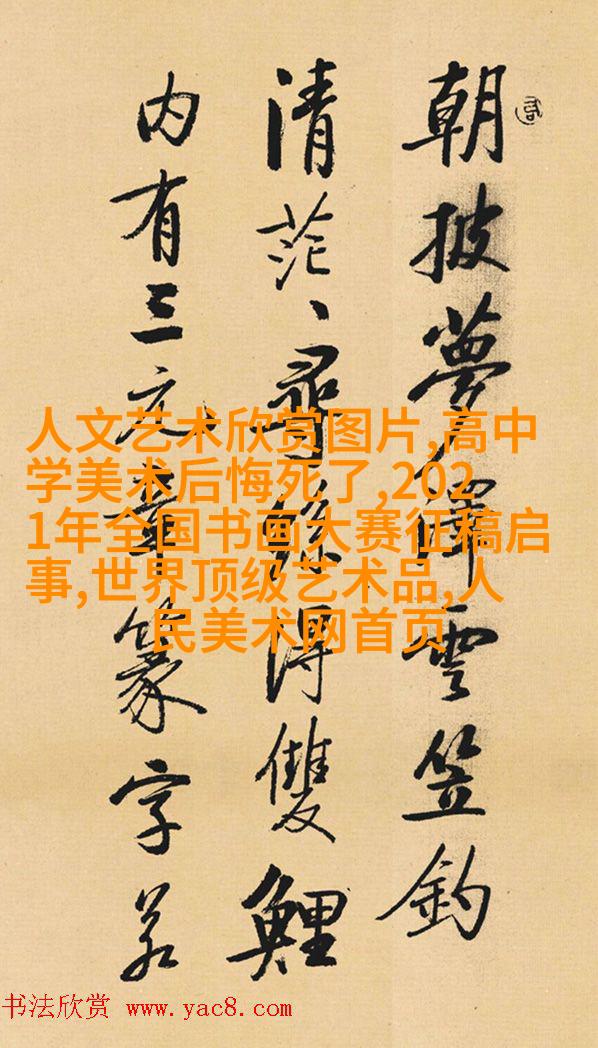 朝披夢澤雲笠釣
清茫、尋絲得雙鯉
内有三元章篆字若
人文艺术欣赏图片,高中
学美术后悔死了,202
1年全国书画大赛征稿启
事,世界顶级艺术品,人
民美术网首页
书法欣赏 www.yac8.com